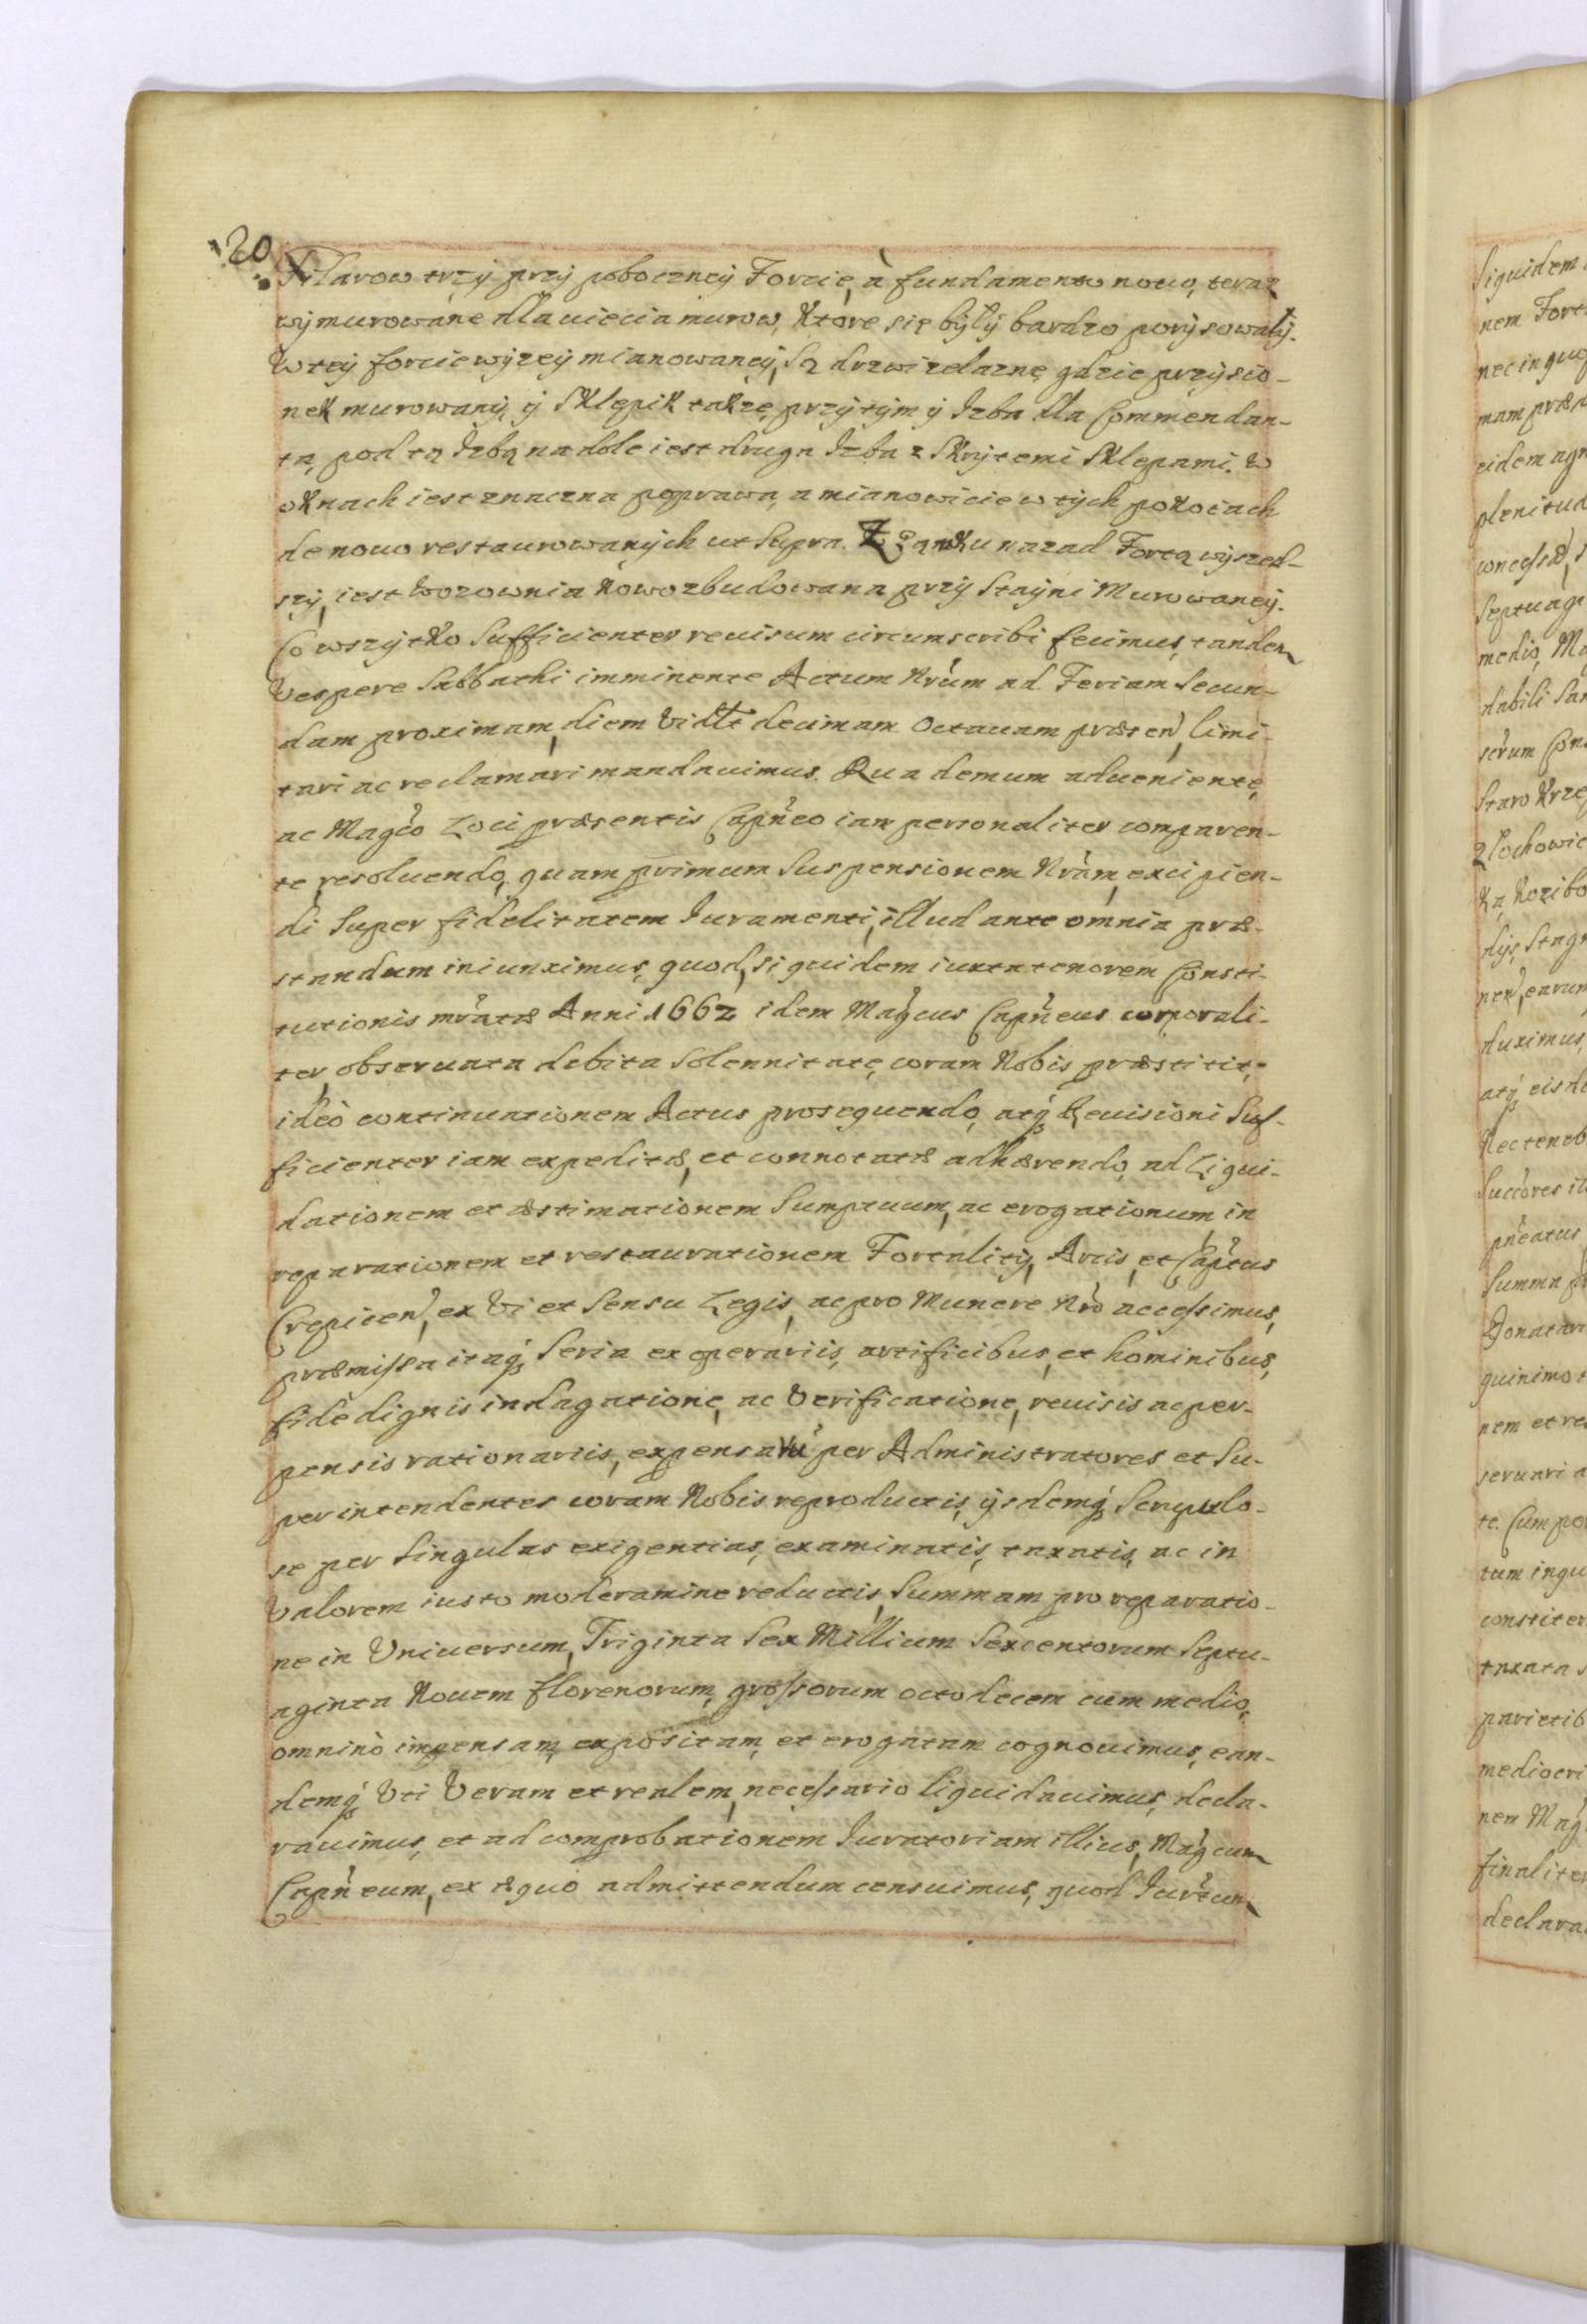 20
Filarow trzÿ przÿ pobocznеÿ Forcie, à fundamento nouo, teraz
wÿmurowane dla uięcia murow, ktore się bÿłÿ bardzo porÿsowałÿ.
W teÿ forcie wÿzeÿ mianowaneÿ, są drzwi zelazne, gdzie przÿsio-
nek murowanÿ, ÿ Sklepik także, przÿtÿm ÿ Izba dla Commendan-
ta, pod tą Izbą na dole iest druga Izba z Skrÿtemi Sklepami. W
oknach iest znaczna poprawa, a mianowicie w tÿch pokoiach
de nouo restaurowanÿch ut supra. Z Zamku nazad Fortą wÿszed-
szÿ, iest Wozownia Nowo zbudowana przÿ Staÿni Murowaneÿ.
Co wszÿtko Sufficienter reuisum circumscribi fecimus, tandem
Vespere Sabbathi imminente Actum Nrum ad Feriam Secun-
dam proximam, diem Vidlt decimam Octauam præsen, limi-
tari ac reclamari mandauimus. Qua demum adueniente,
ac Magco Loci præsentis Capneo iam personaliter comparen-
te, resoluendo, quam primum Suspensionem Nram, excipien-
di Super fidelitatem Iuramenti, illud ante omnia præ-
standum iniunximus, quod, siquidem iuxta tenorem Consti-
tutionis mratæ Anni 1662 idem Magcus Capneus corporali-
ter, obseruata debita Solennitate, coram Nobis præstitit,
ideò continuationem Actus prosequendo, atq Reuisioni Suf-
ficienter iam expeditæ, et connotatæ adhærendo, ad Liqui-
dationem et æstimationem Sumptuum, ac erogationum in
reparationem et restaurationem Fortalitÿ, Arcis, et Captus
Crepicen, ex Vi et Sensu Legis, ac pro Munere Nro accessimus,
præmissa itaq, Seria ex operariis, artificibus, et hominibus,
fide dignis indagatione, ac Verificatione, reuisis ac per-
pensis rationariis, expensaru per Administratores et Su-
perintendentes coram Nobis reproductis, ÿsdemq Scrupulo-
se per Singulas exigentias, examinatis, taxatis, ac in
Valorem iusto moderamine reductis, Summam pro reparatio-
ne in Vniuersum, Triginta Sex Millium Sexcentorum Septu-
aginta Nouem florenorum, grossorum octodecem cum medio,
omninò impensam, expositam, et erogatam cognouimus, ean-
demq Vti Veram et realem, necessario liquidauimus, decla-
rauimus, et ad comprobationem Iuratoriam illius, Magcum
Capneum, ex æquo admittendum censuimus, quod Iurtum